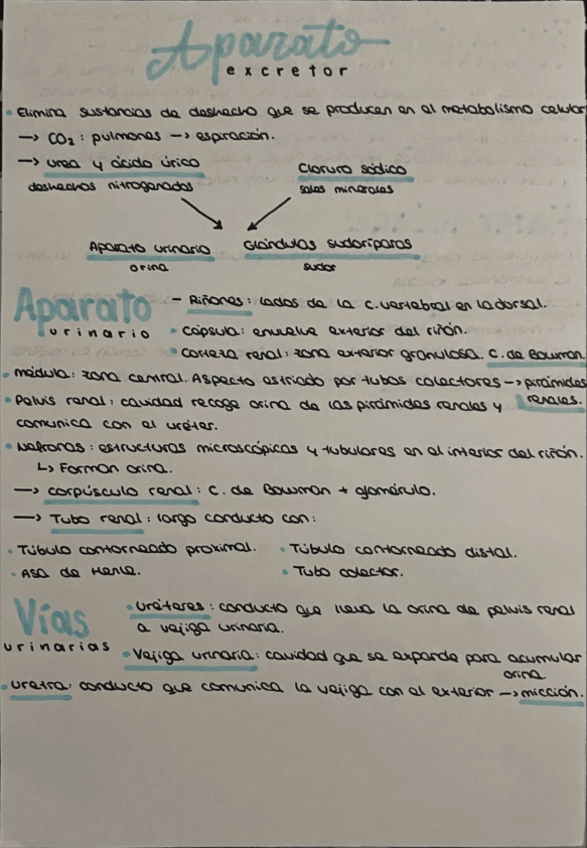 Aparato
excretor
• Elimina sustancias de deshecho que se producen en el metabolismo celular
→ CO₂: pulmones → espiración.
→ urea y ácido úrico
Cloruro sódico
deshechos nitrogenados
sales minerales
Aparato urinario
Glándulas sudoríparas
orina
sudor
Aparato
urinario
- Riñones: lados de la c. vertebral en la dorsal.
• cápsula: envuelve exterior del riñón.
• corteza renal: zona exterior granulosa. C. de Bowman.
• médula: zona central. Aspecto estriado por tubos colectores → pirámides
renales.
• Pelvis renal: cavidad recoge orina de las pirámides renales y
comunica con el uréter.
• Nefronas: estructuras microscópicas y tubulares en el interior del riñón.
↳ Forman orina.
→ corpúsculo renal: C. de Bowman + glomérulo.
→ Tubo renal: largo conducto con:
• Túbulo contorneado proximal.
• Túbulo contorneado distal.
• Asa de Henle.
• Tubo colector.
Vías
urinarias
• uréteres: conducto que lleva la orina de pelvis renal
a vejiga urinaria.
• Vejiga urinaria: cavidad que se expande para acumular
orina
• uretra: conducto que comunica la vejiga con el exterior → micción.